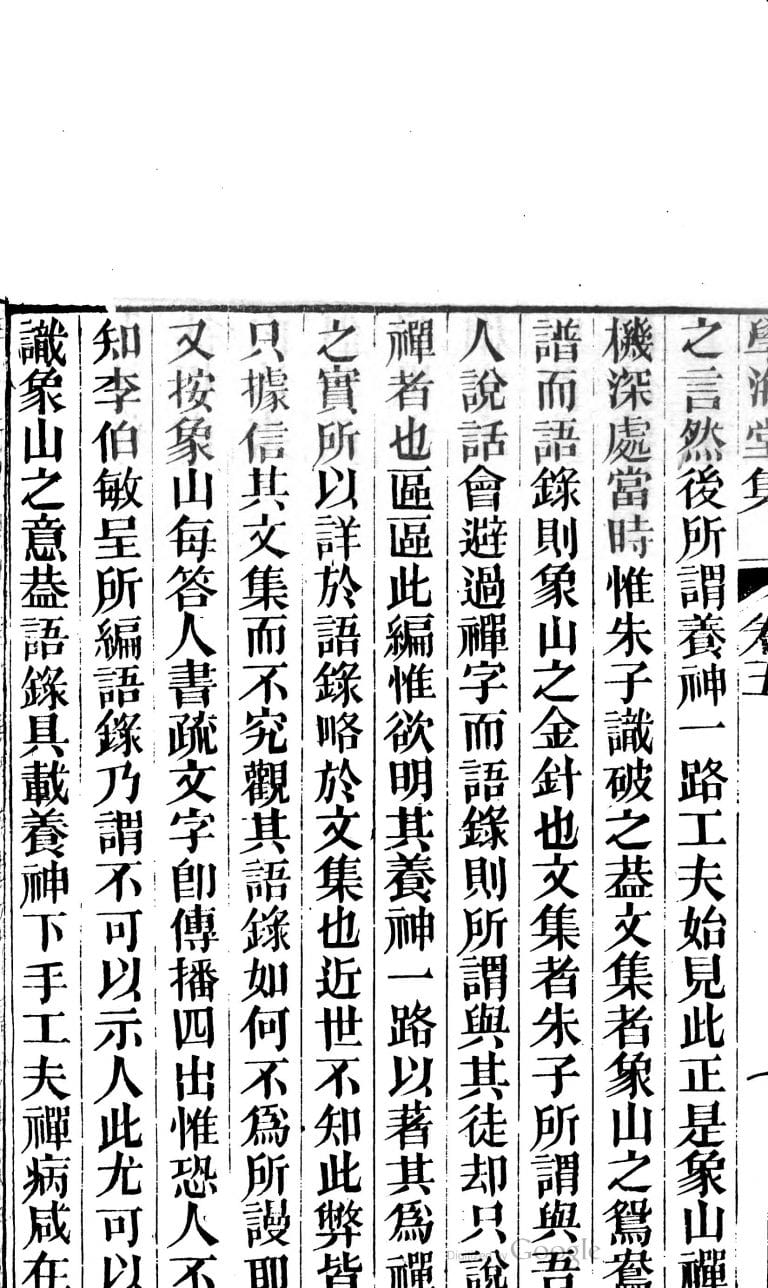 學海堂集 卷五
之言然後所謂養神一路工夫始見此正是象山禪
機深處當時惟朱子識破之葢文集者象山之鴛鴦
譜而語錄則象山之金針也文集者朱子所謂與吾
人說話會避過禪字而語錄則所謂與其徒却只說
禪者也區區此編惟欲明其養神一路以著其為禪
之實所以詳於語錄略於文集也近世不知此弊皆
只據信其文集而不究觀其語錄如何不為所謾即
又按象山每答人書疏文字卽傳播四出惟恐人不
知李伯敏呈所編語錄乃謂不可以示人此尤可以
識象山之意葢語錄具載養神下手工夫禪病咸在
Digitized by Google